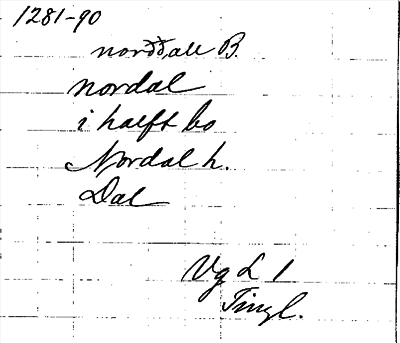 1281-90
norddall B.
nordal
i halft bo
Nordal h.
Dal
Vg L 1
Tingl.